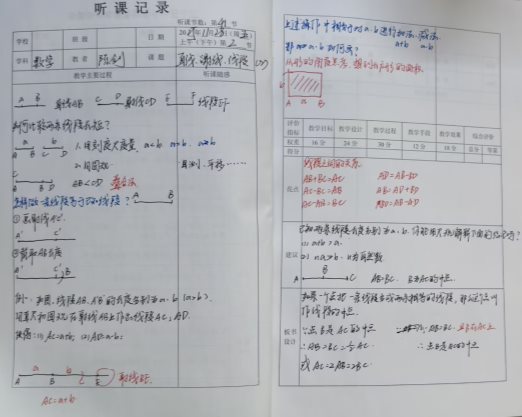 听课记录
听课节数：第 节
学校 班级 日期
上午（下午）第2节
学科 数学 教者 课题 直线、射线、线段
教学主要过程 听课随感
A B 直线AB C D 射线CD E F 线段EF
如何比较两条线段长短？
a b
A B C D
1. 用刻度尺度量. a<b a>b a=b
2. 用圆规
AB<CD 叠合法
目测、平移……
怎样做一条线段等于已知线段？
A B
①画射线A'C'
A' C'
②截取AB长度
A' C'
B'
例：如图，线段AB、AB'的长度分别为a、b（a>b）.
用直尺和圆规在射线AB上作出线段AC、AD.
使得：(1) AC=a+b; (2) AD=a-b;
a b
A B C E 射线BE
AC=a+b
上述操作中相当于对a、b进行加法、减法
a+b a-b
那么a·b如何表？
从形的角度思考，想到长方形的面积.
b
A a B
评价指标 教学目标 教学设计 教学过程 教学手段 教学效果 综合评价
权重 16分 24分 30分 12分 18分 总分 等第
得分
优点
线段之间的关系
AB+BC=AC AD=AB-BD
AC-BC=AB AB=AD+BD
AC-AB=BC BD=AB-AD
建议
已知两条线段长度分别为a、b. 你能用尺规解释下面的结论吗？
(1) a+b>a.
A B C AB=BC. B是AC的中点.
板书设计
如果一个点把一条线段分成两条相等的线段，那么这个点叫
作线段的中点.
∵点B是AC的中点 ∵AB=BC. 且B在AC上
∴AB=BC=½AC ∴点B是AC的中点
或AC=2AB=2BC